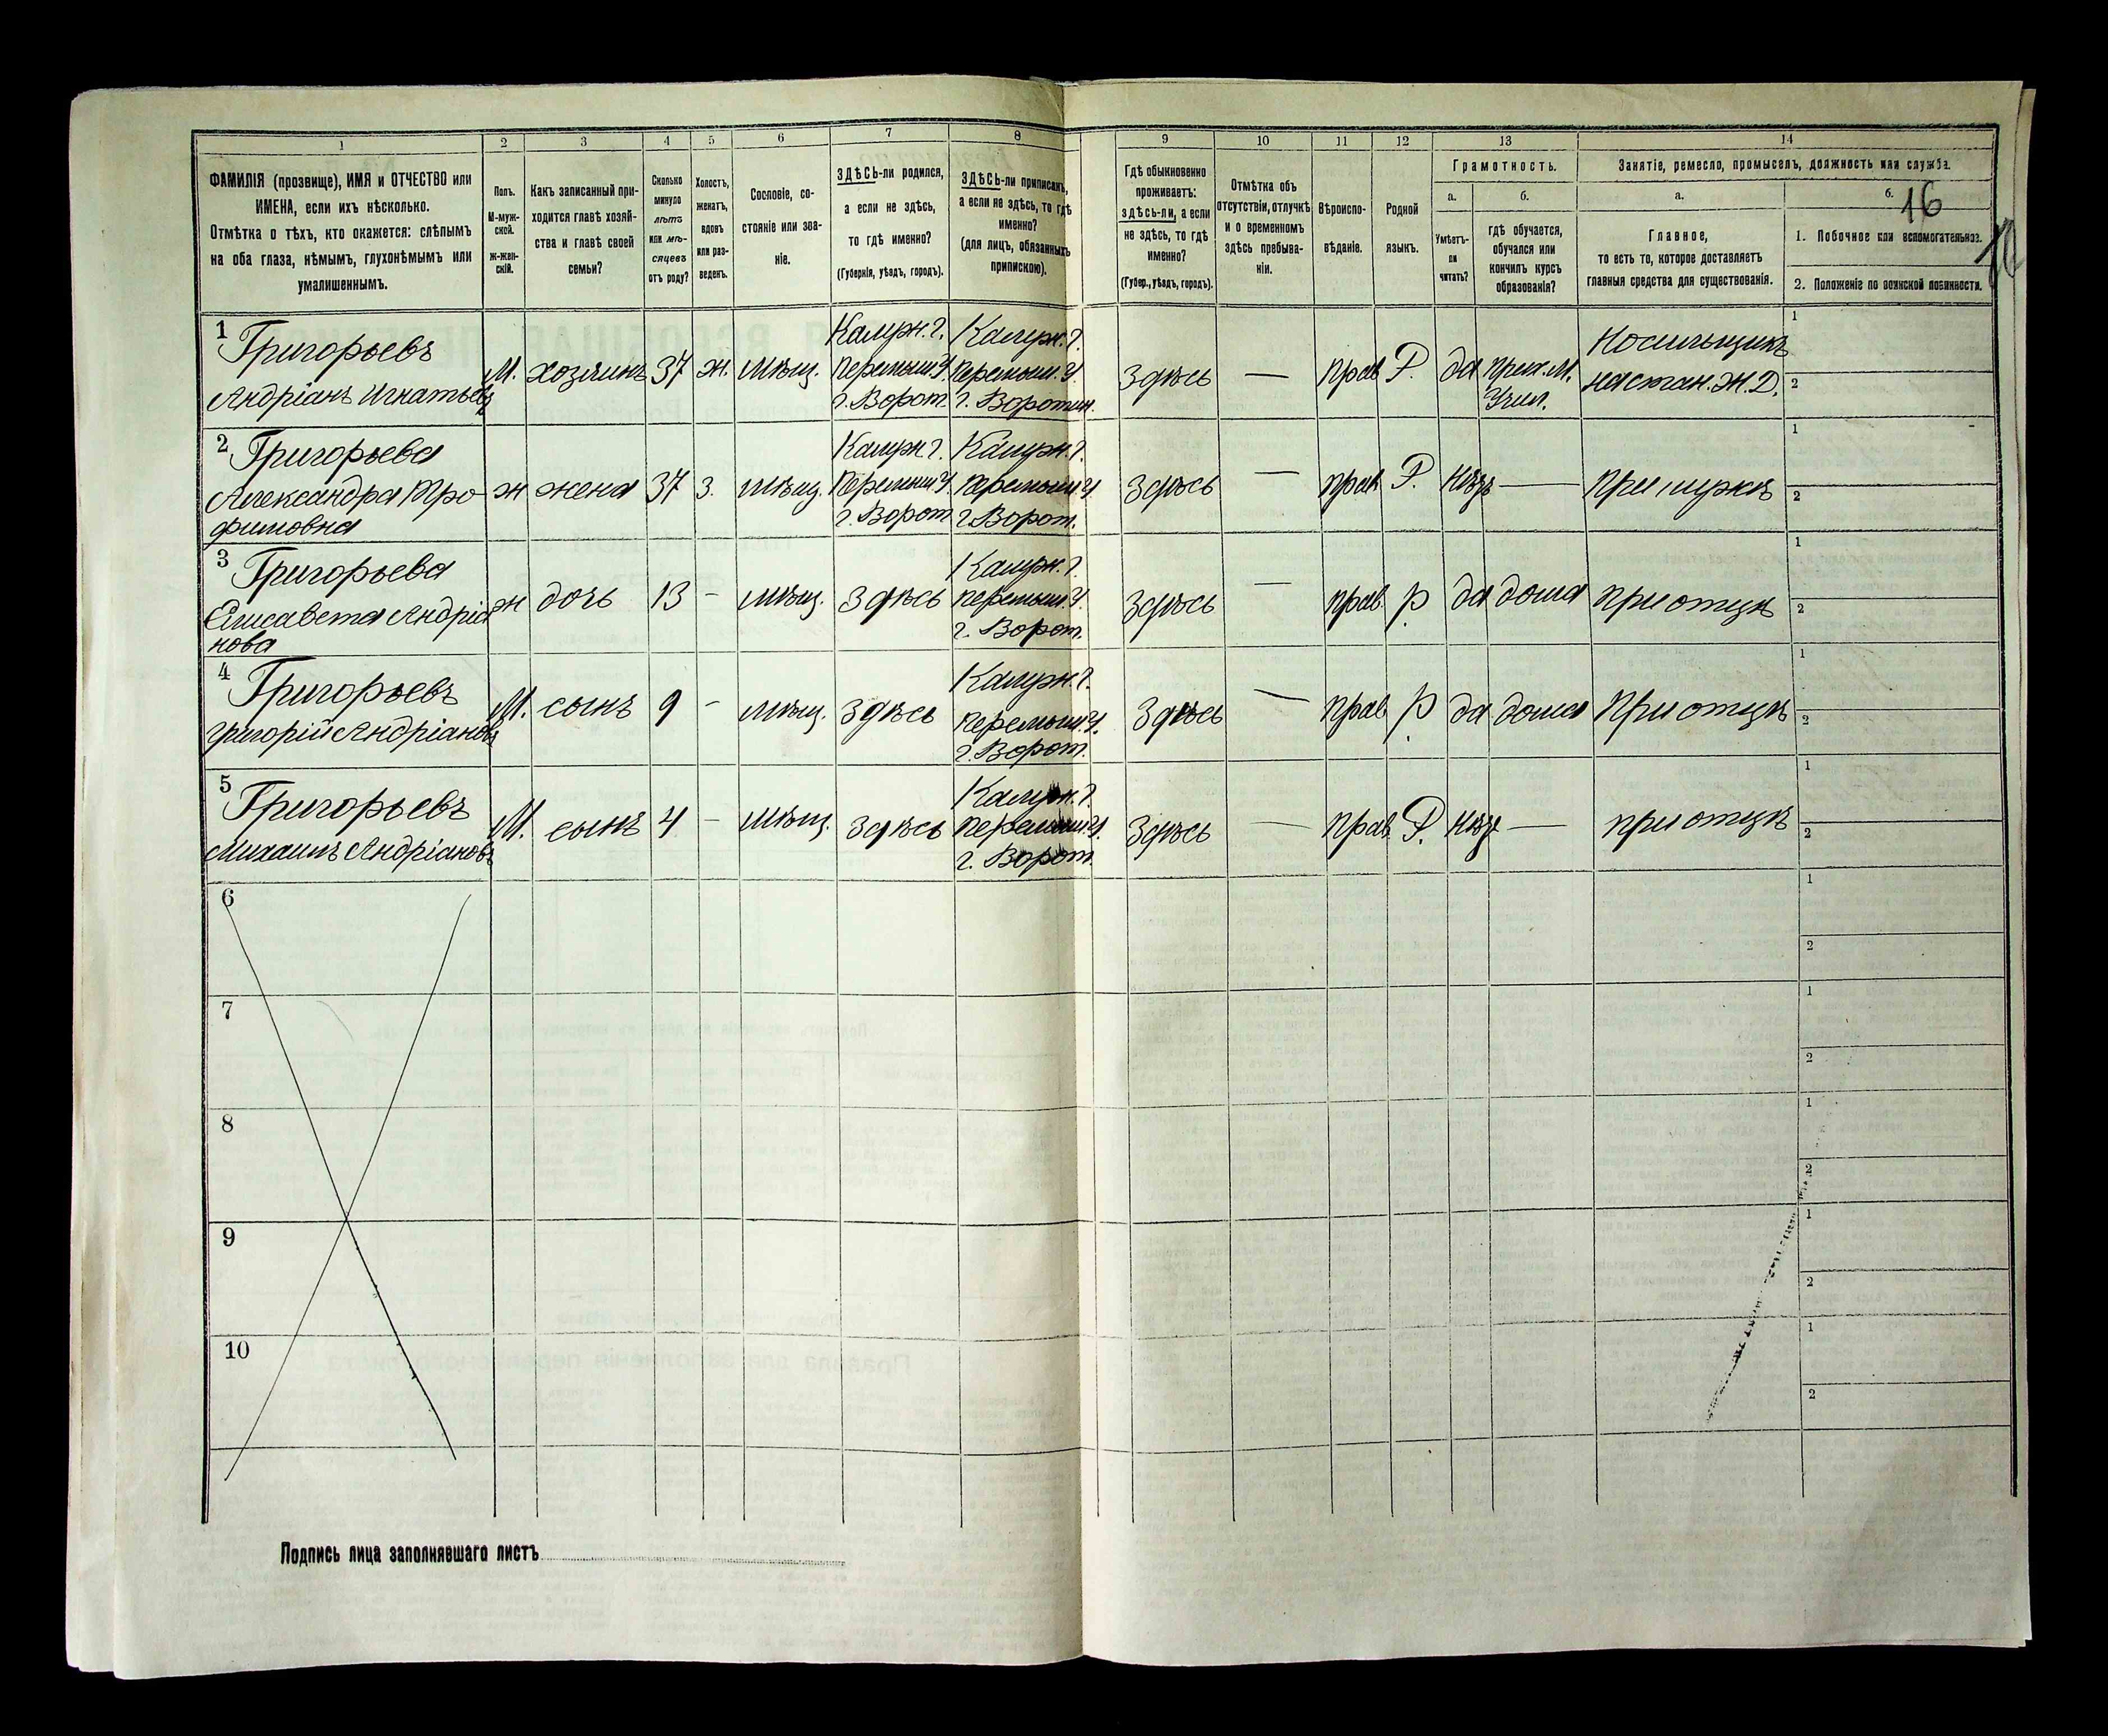 1 2 3 4 5 6 7 8 9 10 11 12 13 14
ФАМИЛІЯ (прозвище), ИМЯ и ОТЧЕСТВО или
ИМЕНА, если ихъ нѣсколько.
Отмѣтка о тѣхъ, кто окажется: слѣпымъ
на оба глаза, нѣмымъ, глухонѣмымъ или
умалишеннымъ.
Полъ.
М-муж-
ской.
Ж-жен-
скій.
Какъ записанный при-
ходится главѣ хозяй-
ства и главѣ своей
семьи?
Сколько
минуло
лѣтъ
или мѣ-
сяцевъ
отъ роду?
Холостъ,
женатъ,
вдовъ
или раз-
веденъ.
Сословіе, со-
стояніе или зва-
ніе.
ЗДѢСЬ-ли родился,
а если не здѣсь,
то гдѣ именно?
(Губернія, уѣздъ, городъ).
ЗДѢСЬ-ли приписанъ,
а если не здѣсь, то гдѣ
именно?
(для лицъ, обязанныхъ
припискою).
Гдѣ обыкновенно
проживаетъ:
здѣсь-ли, а если
не здѣсь, то гдѣ
именно?
(Губер., уѣздъ, городъ).
Отмѣтка объ
отсутствіи, отлучкѣ
и о временномъ
здѣсь пребыва-
ніи.
Вѣроиспо-
вѣданіе.
Родной
языкъ.
Грамотность.
а.
Умѣетъ-
ли
читать?
б.
гдѣ обучается,
обучался или
кончилъ курсъ
образованія?
Занятіе, ремесло, промыселъ, должность или служба.
а.
Главное,
то есть то, которое доставляетъ
главныя средства для существованія.
б.
16
1. Побочное или вспомогательное.
2. Положеніе по воинской повинности.
1 Григорьевъ
Андріанъ Игнатьевъ
М. хозяинъ 37 ж. мѣщ.
Калужн. г.
Перемыш. У.
г. Ворот.
Калужн. г.
Перемыш. У.
г. Воротын.
Здѣсь — прав Р. да
прих. М.
Учил.
Носильщикъ
на стан. Ж. Д.
1
2
2 Григорьева
Александра Тро-
фимовна
ж жена 37 З. мѣщ.
Калужн г.
Перемыш У.
г. Ворот
Калужн. г.
Перемыш У
г. Ворот.
Здѣсь — прав. Р. нѣтъ — при мужѣ
1
2
3 Григорьева
Елисавета Андріа
нова
ж дочь 13 - мѣщ. Здѣсь
Калужн. г.
Перемыш. У.
г. Ворот.
Здѣсь — прав. р да дома при отцѣ
1
2
4 Григорьевъ
Григорій Андріановъ
М. сынъ 9 - мѣщ. Здѣсь
Калужн. г.
Перемыш. У.
г. Ворот.
Здѣсь — прав. р да дома При отцѣ
1
2
5 Григорьевъ
Михаилъ Андріановъ
М. сынъ 4 - мѣщ. Здѣсь
Калужн. г.
Перемыш. У.
г. Ворот.
Здѣсь — прав. Р. нѣтъ — при отцѣ
1
2
6
1
2
7
1
2
8
1
2
9
1
2
10
1
2
Подпись лица заполнявшаго листъ